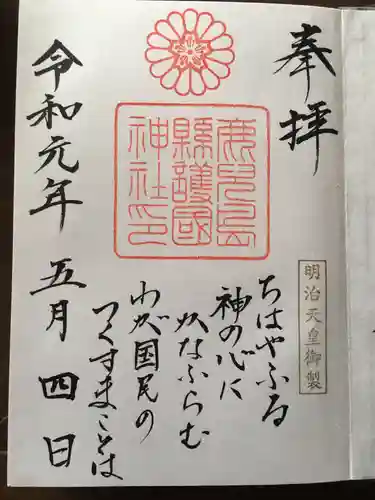 奉拝
鹿児島
縣護國
神社印
明治天皇御製
ちはやふる
神の心に
かなふらむ
わが国民の
つくすまことは
令和元年 五月 四日